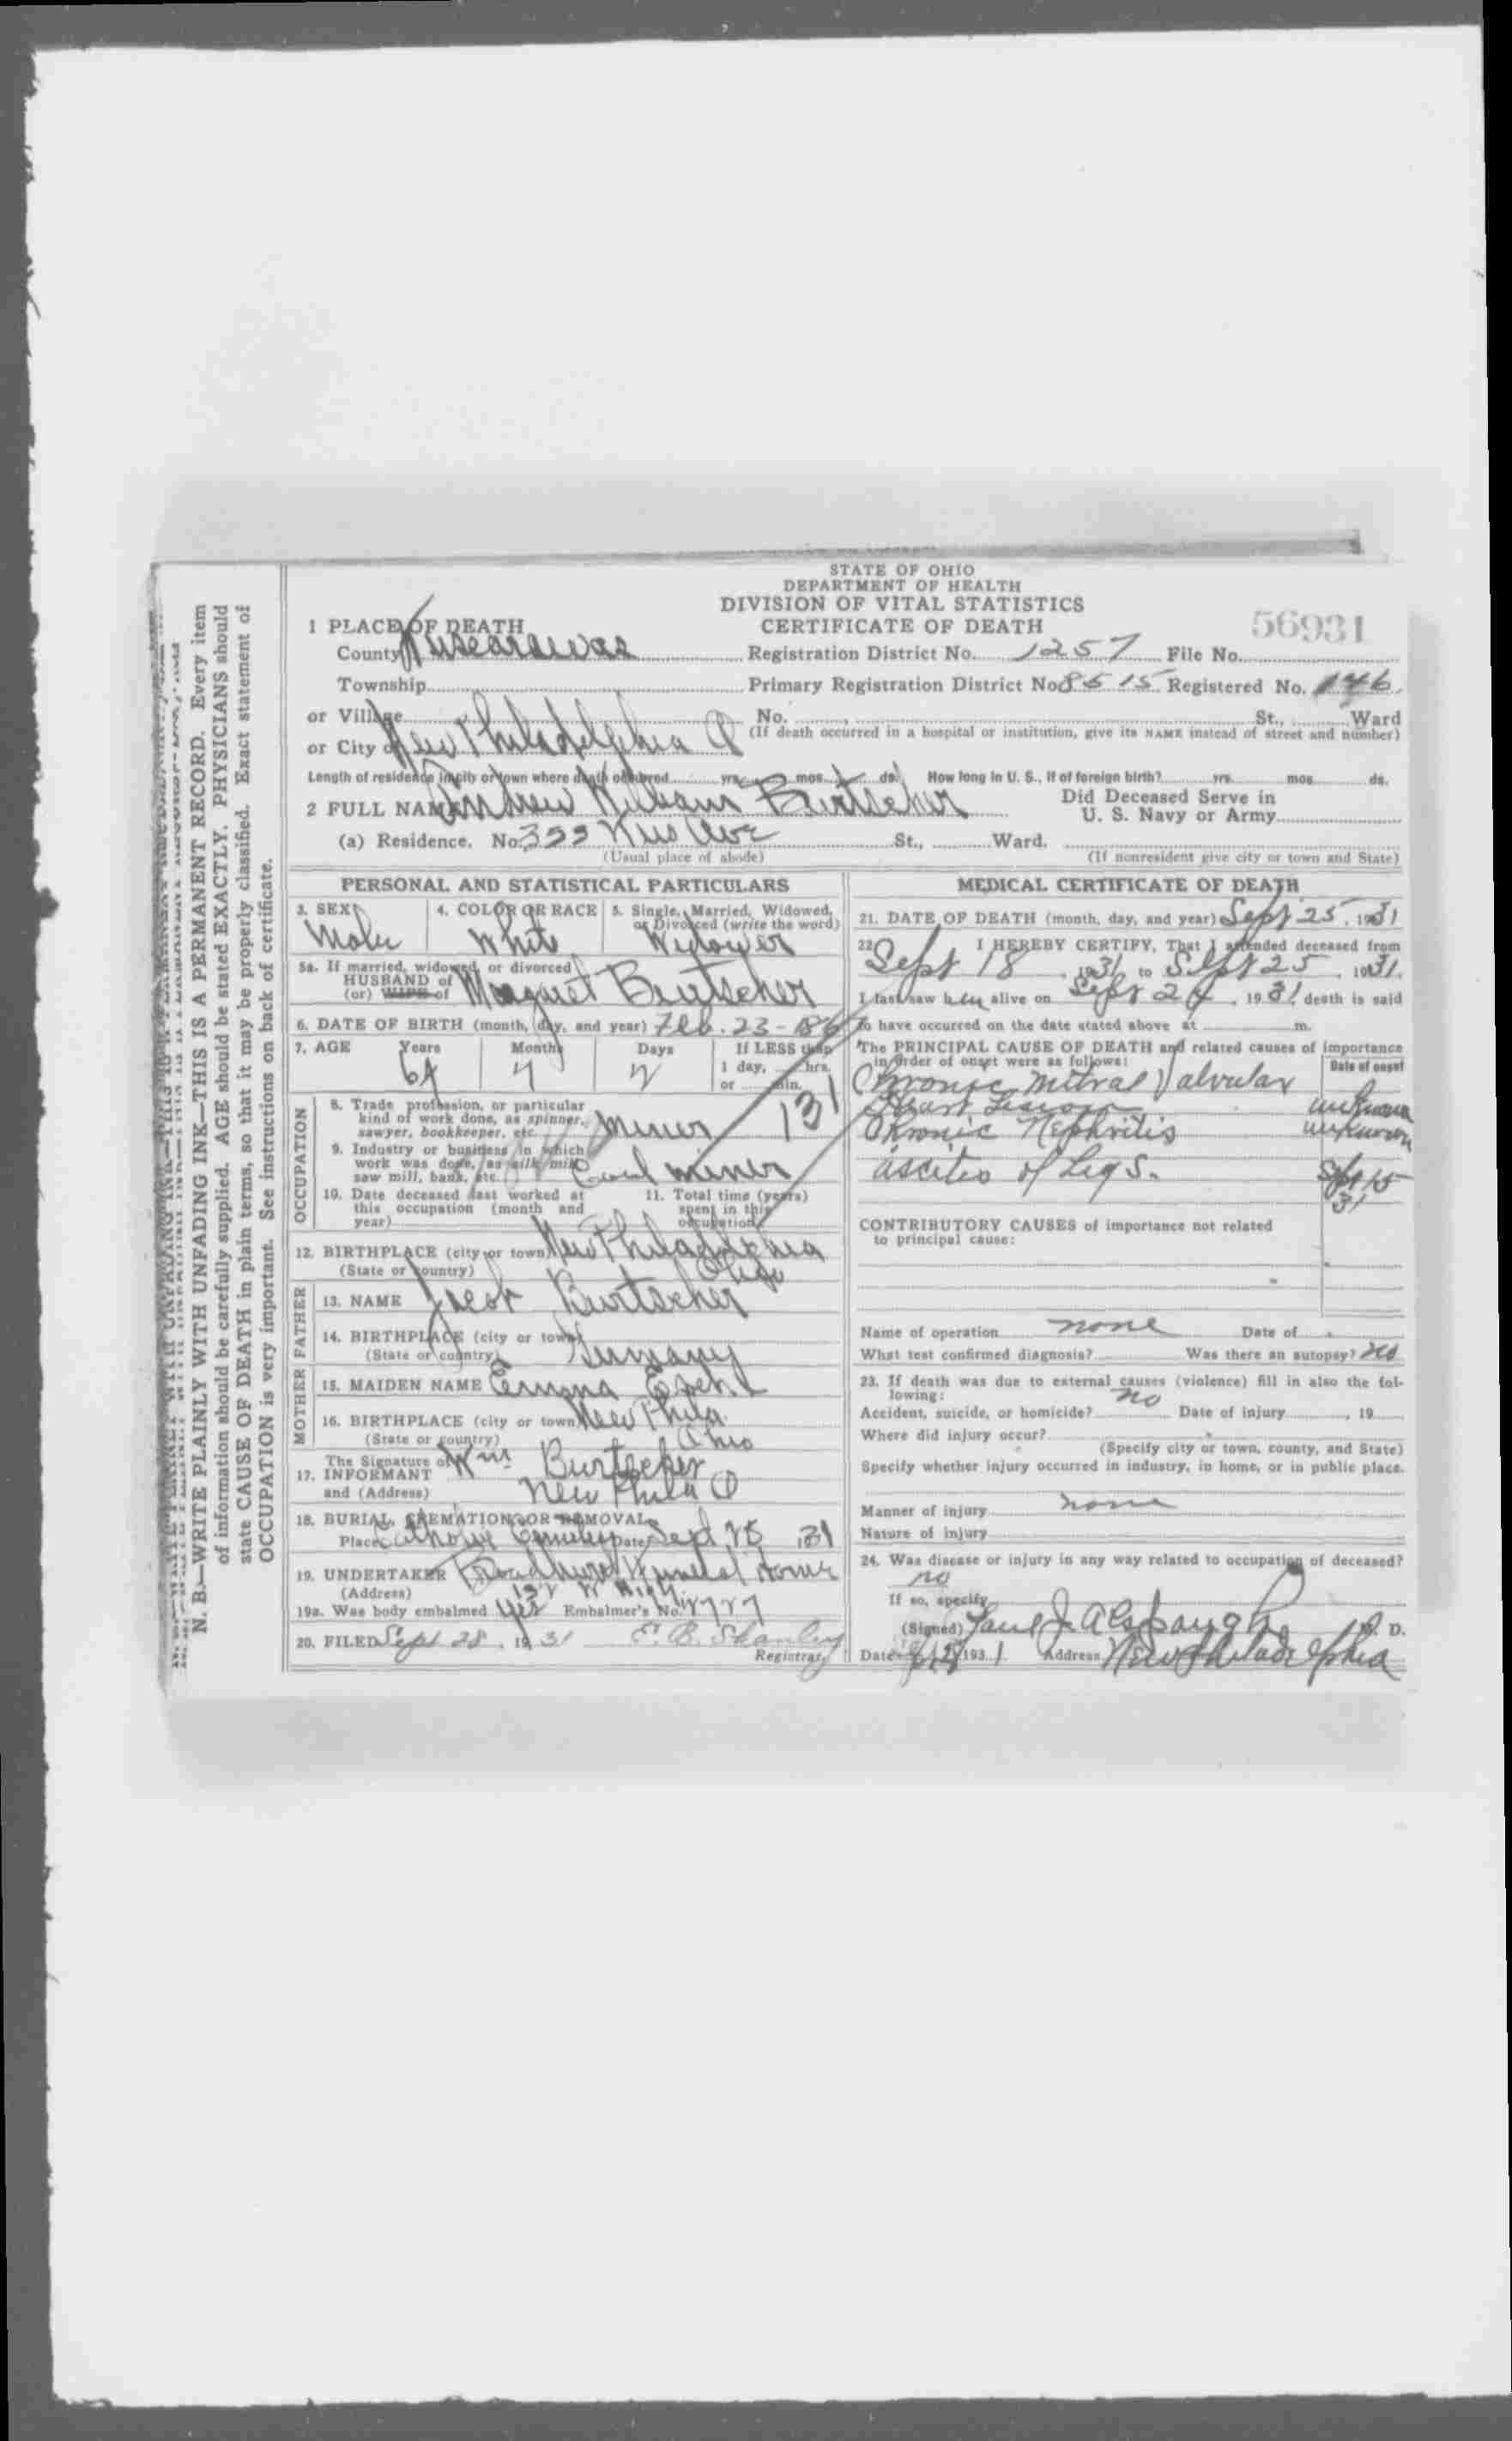 STATE OF OHIO
DEPARTMENT OF HEALTH
DIVISION OF VITAL STATISTICS
CERTIFICATE OF DEATH
56931
1 PLACE OF DEATH
County Tuscarawas Registration District No. 1257 File No.
Township Primary Registration District No. 8515 Registered No. 146
or Village No. St., Ward
or City of New Philadelphia O (If death occurred in a hospital or institution, give its NAME instead of street and number)
Length of residence in city or town where death occurred yrs. mos. ds. How long in U. S., if of foreign birth? yrs. mos. ds.
2 FULL NAME Andrew William Burtscher Did Deceased Serve in
U. S. Navy or Army
(a) Residence. No. Ave St., Ward.
(Usual place of abode) (If nonresident give city or town and State)
PERSONAL AND STATISTICAL PARTICULARS
3. SEX 4. COLOR OR RACE 5. Single, Married, Widowed,
or Divorced (write the word)
Male White Widower
5a. If married, widowed, or divorced
HUSBAND of
(or) WIFE of Margaret Burtscher
6. DATE OF BIRTH (month, day, and year) Feb. 23-1867
7. AGE Years Months Days If LESS than
1 day, hrs.
or min.
64 7 2
131
OCCUPATION
8. Trade profession, or particular
kind of work done, as spinner,
sawyer, bookkeeper, etc. Miner
9. Industry or business in which
work was done, as silk mill,
saw mill, bank, etc. Coal miner
10. Date deceased last worked at
this occupation (month and
year)
11. Total time (years)
spent in this
occupation
12. BIRTHPLACE (city or town) New Philadelphia
(State or country) Ohio
FATHER
13. NAME Jacob Burtscher
14. BIRTHPLACE (city or town)
(State or country) Germany
MOTHER
15. MAIDEN NAME Emma
16. BIRTHPLACE (city or town) New Phila.
(State or country) Ohio
The Signature of
17. INFORMANT Wm Burtscher
and (Address) New Phila O
18. BURIAL, CREMATION OR REMOVAL
Place Catholic Cemetery Date Sept 28 31
19. UNDERTAKER Funeral Home
(Address) W High
19a. Was body embalmed Yes Embalmer's No.
20. FILED Sept 28, 19 31 Registrar
MEDICAL CERTIFICATE OF DEATH
21. DATE OF DEATH (month, day, and year) Sept 25, 1931
22. I HEREBY CERTIFY, That I attended deceased from
Sept 18, 1931, to Sept 25, 1931.
I last saw him alive on Sept 24, 1931, death is said
to have occurred on the date stated above at m.
The PRINCIPAL CAUSE OF DEATH and related causes of importance
in order of onset were as follows: Date of onset
Chronic mitral Valvular
Heart Lesion unknown
Chronic Nephritis unknown
ascites of Legs. Sept 15
31
CONTRIBUTORY CAUSES of importance not related
to principal cause:
Name of operation none Date of
What test confirmed diagnosis? Was there an autopsy? No
23. If death was due to external causes (violence) fill in also the fol-
lowing:
Accident, suicide, or homicide? no Date of injury, 19
Where did injury occur?
(Specify city or town, county, and State)
Specify whether injury occurred in industry, in home, or in public place.
Manner of injury none
Nature of injury
24. Was disease or injury in any way related to occupation of deceased?
no
If so, specify
(Signed) Paul J. Alspaugh M. D.
Date 1931 Address New Philadelphia
N. B.—WRITE PLAINLY WITH UNFADING INK—THIS IS A PERMANENT RECORD. Every item
of information should be carefully supplied. AGE should be stated EXACTLY. PHYSICIANS should
state CAUSE OF DEATH in plain terms, so that it may be properly classified. Exact statement of
OCCUPATION is very important. See instructions on back of certificate.